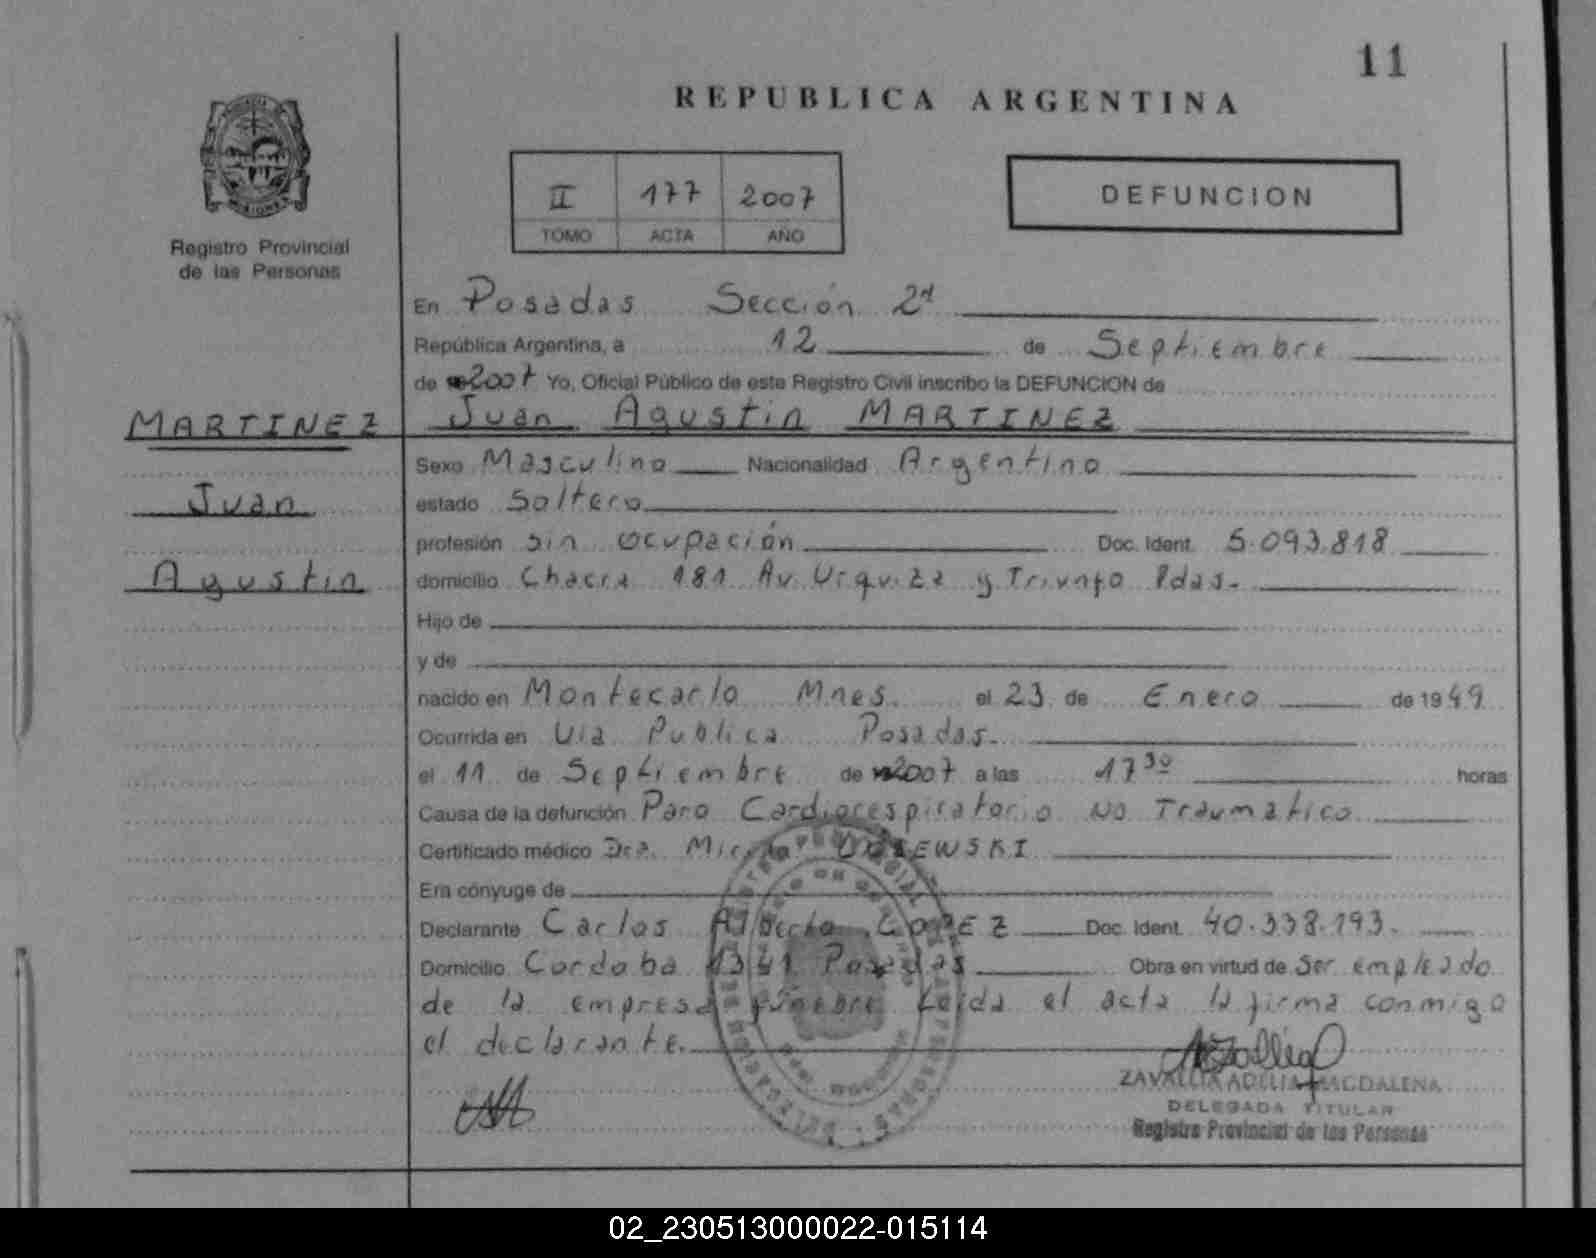 11
REPUBLICA ARGENTINA
MISIONES
Registro Provincial
de las Personas
II 177 2007
TOMO ACTA AÑO
DEFUNCION
En Posadas Sección 2ª
República Argentina, a 12 de Septiembre
de 2007 Yo, Oficial Público de este Registro Civil inscribo la DEFUNCION de
MARTINEZ Juan Agustin MARTINEZ
Sexo Masculino Nacionalidad Argentino
Juan estado Soltero
profesión sin ocupación Doc. Ident. 5.093.818
Agustin domicilio Chacra 181 Av. Urquiza y Triunfo Pdas.
Hijo de
y de
nacido en Montecarlo Mnes. el 23 de Enero de 1949
Ocurrida en Via Publica Posadas.
el 11 de Septiembre de 2007 a las 17³⁰ horas
Causa de la defunción Paro Cardiorespiratorio No Traumatico
Certificado médico Dra.
Era cónyuge de
Declarante Carlos Alberto LOPEZ Doc. Ident. 40.338.193.
Domicilio Cordoba 1341 Posadas Obra en virtud de Ser empleado
de la empresa fúnebre Leida el acta la firma conmigo
el declarante.
ZAVALLIA ADELIA MAGDALENA
DELEGADA TITULAR
Registro Provincial de las Personas
02_230513000022-015114